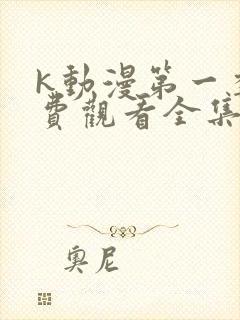 K動漫第一
費觀看全集
奧尼